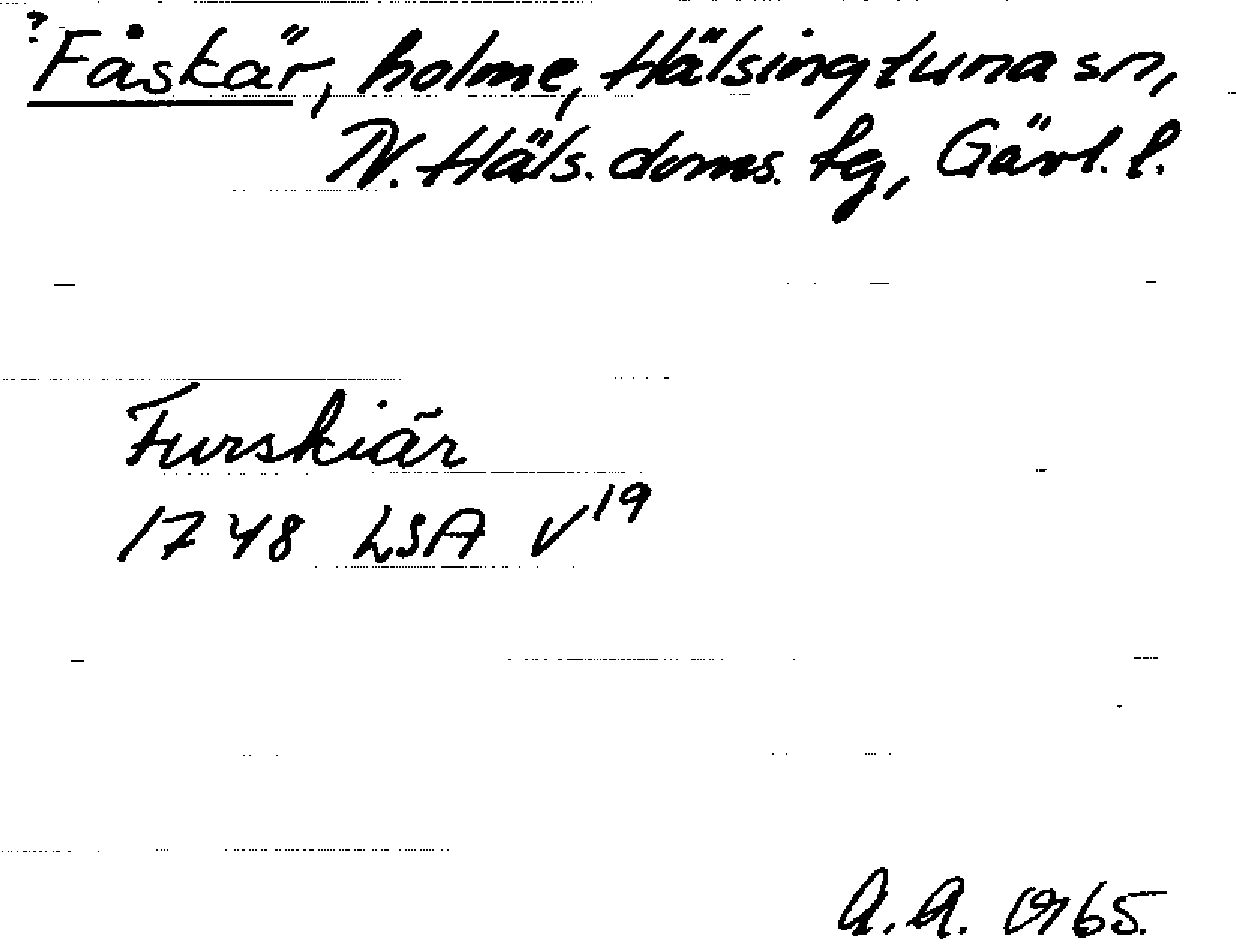 ?Fåskär, holme, Hälsingtuna sn,
N. Häls. doms. tg, Gävl. l.
Furskiär
1748 LSA V19
A. A. 1965